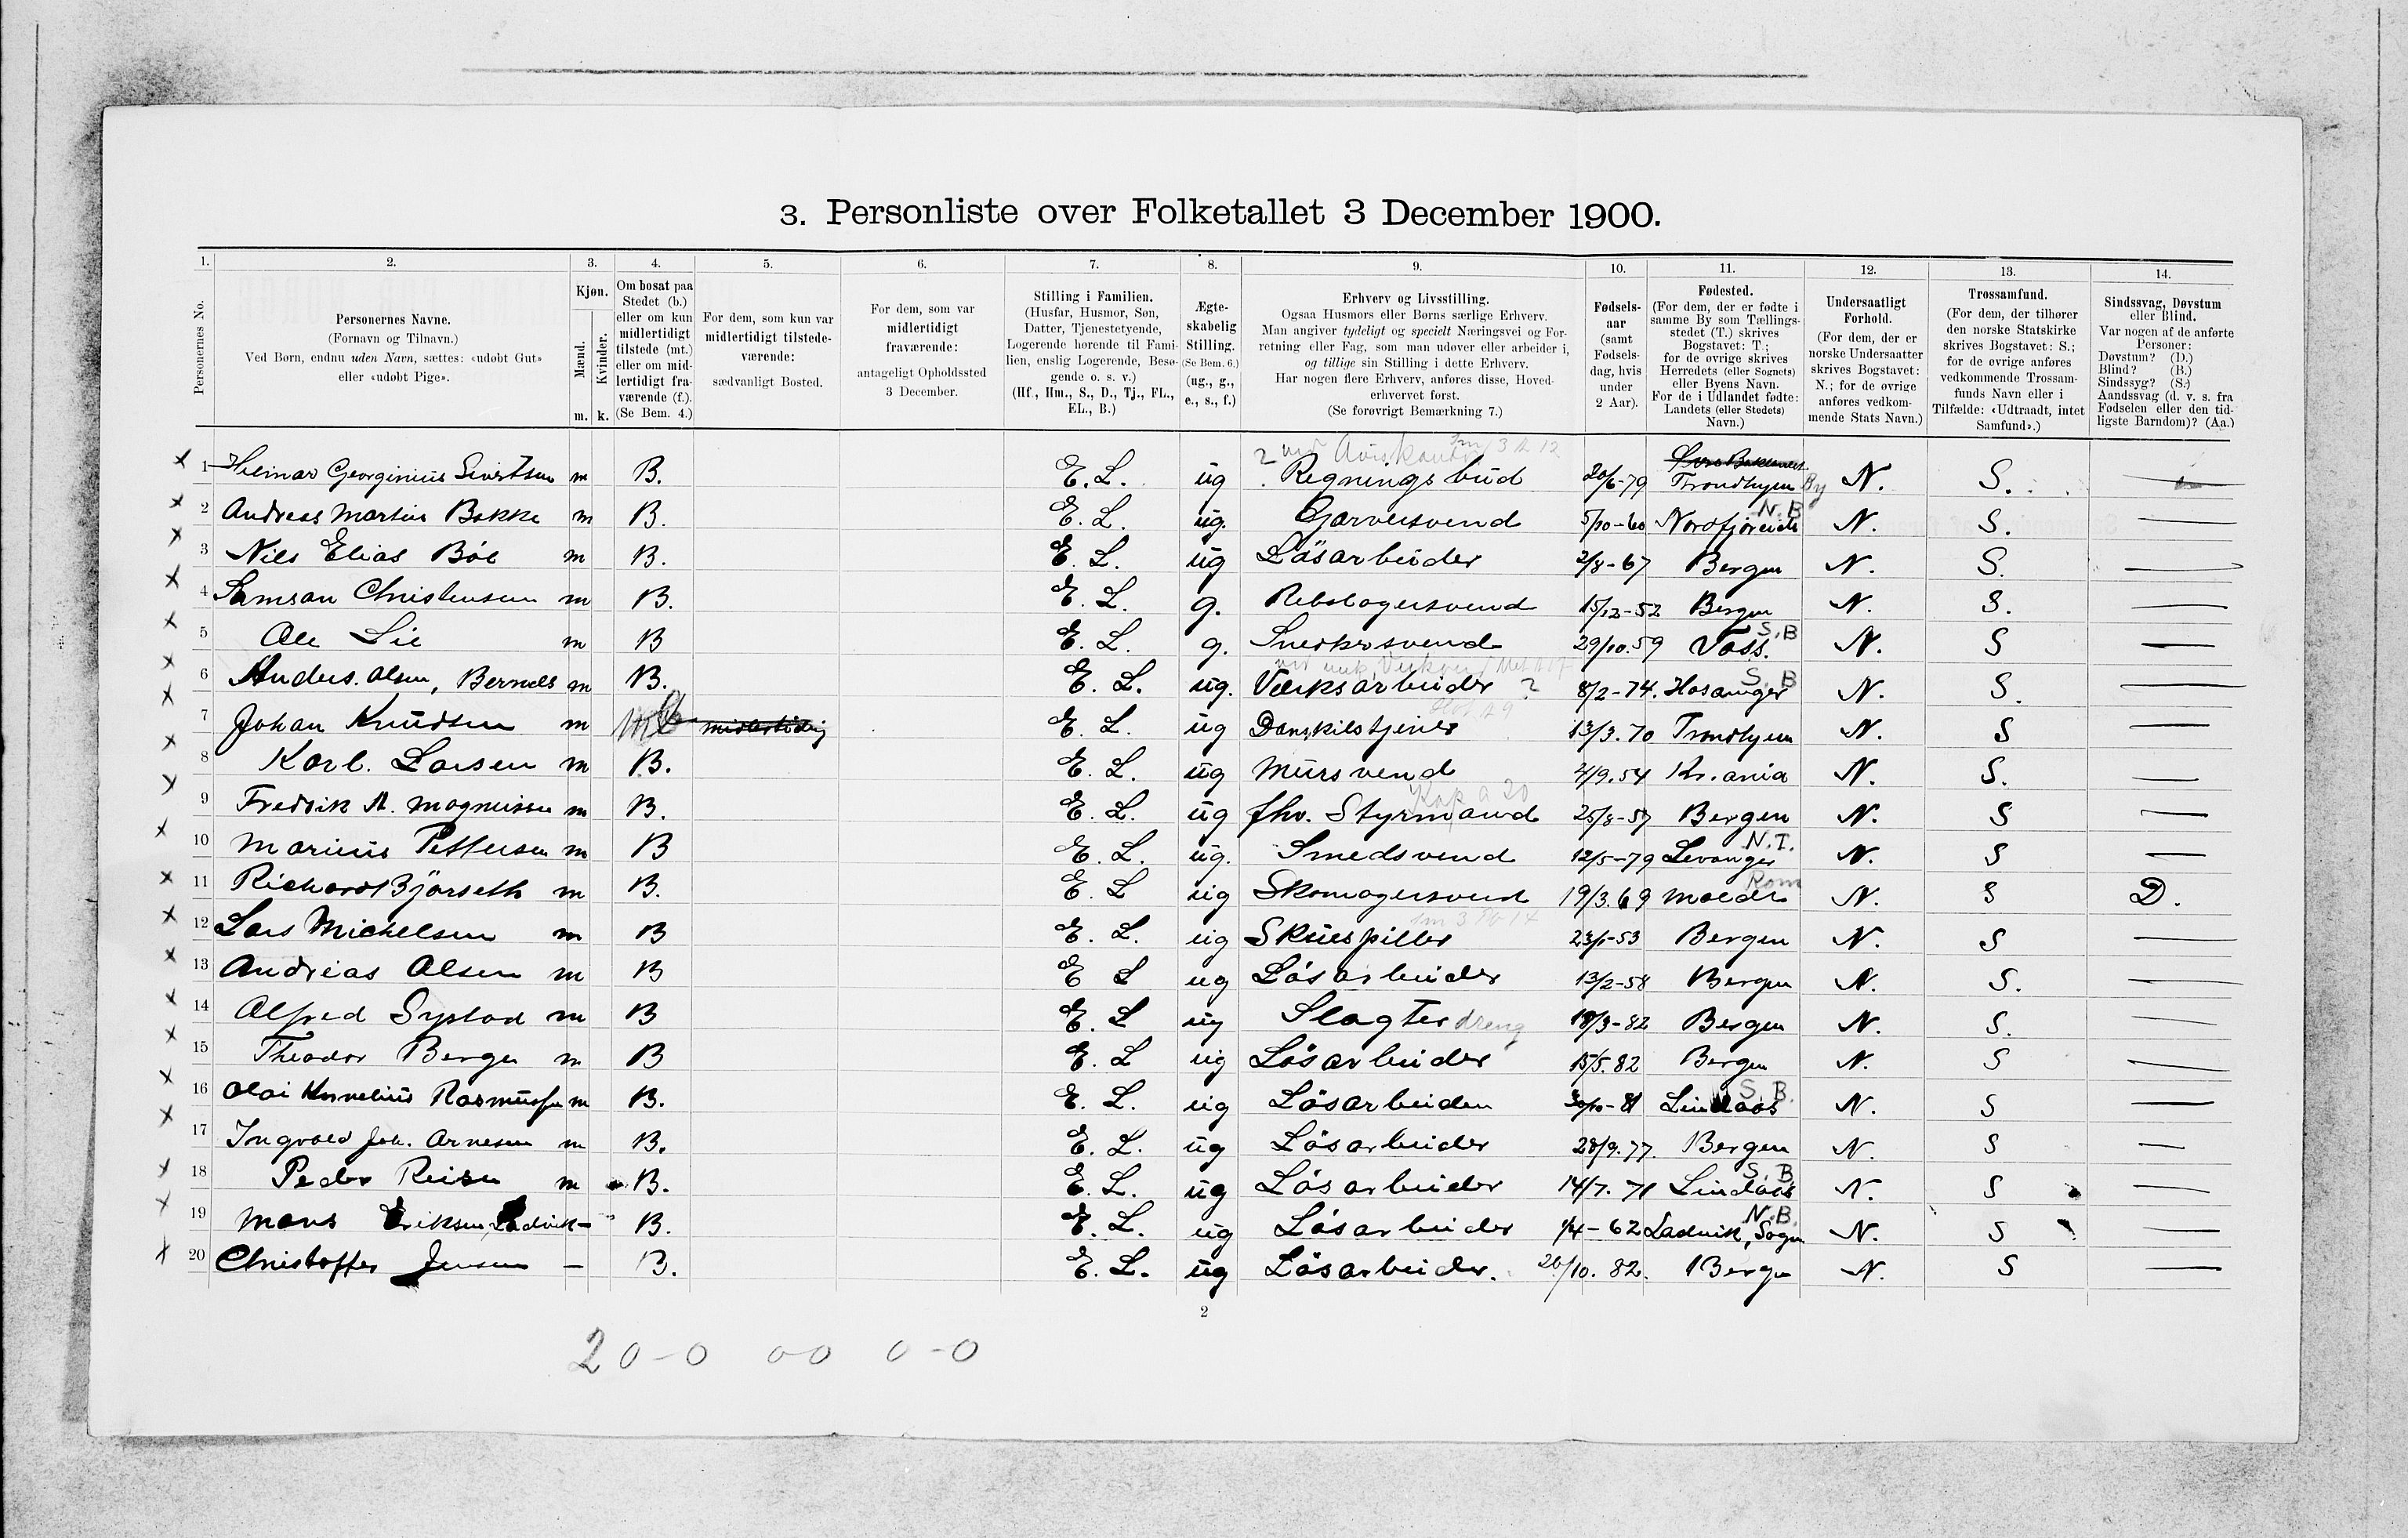 3. Personliste over Folketallet 3 December 1900.
1. 2. 3. 4. 5. 6. 7. 8. 9. 10. 11. 12. 13. 14.
Personernes No.
Personernes Navne.
(Fornavn og Tilnavn.)
Ved Børn, endnu uden Navn, sættes: «udøbt Gut»
eller «udøbt Pige».
Kjøn.
Mænd.
Kvinder.
m. k.
Om bosat paa
Stedet (b.)
eller om kun
midlertidigt
tilstede (mt.)
eller om mid-
lertidigt fra-
værende (f.).
(Se Bem. 4.)
For dem, som kun var
midlertidigt tilstede-
værende:
sædvanligt Bosted.
For dem, som var
midlertidigt
fraværende:
antageligt Opholdssted
3 December.
Stilling i Familien.
(Husfar, Husmor, Søn,
Datter, Tjenestetyende,
Logerende hørende til Fami-
lien, enslig Logerende, Besø-
gende o. s. v.)
(Hf., Hm., S., D., Tj., FL.,
EL., B.)
Ægte-
skabelig
Stilling.
(Se Bem. 6.)
(ug., g.,
e., s., f.)
Erhverv og Livsstilling.
Ogsaa Husmors eller Børns særlige Erhverv.
Man angiver tydeligt og specielt Næringsvei og For-
retning eller Fag, som man udøver eller arbeider i,
og tillige sin Stilling i dette Erhverv.
Har nogen flere Erhverv, anføres disse, Hoved-
erhvervet først.
(Se forøvrigt Bemærkning 7.)
Fødsels-
aar
(samt
Fødsels-
dag, hvis
under
2 Aar).
Fødested.
(For dem, der er fødte i
samme By som Tællings-
stedet (T.) skrives
Bogstavet: T.;
for de øvrige skrives
Herredets (eller Sognets)
eller Byens Navn.
For de i Udlandet fødte:
Landets (eller Stedets)
Navn.)
Undersaatligt
Forhold.
(For dem, der er
norske Undersaatter
skrives Bogstavet:
N.; for de øvrige
anføres vedkom-
mende Stats Navn.)
Trossamfund.
(For dem, der tilhører
den norske Statskirke
skrives Bogstavet: S.;
for de øvrige anføres
vedkommende Trossam-
funds Navn eller i
Tilfælde: «Udtraadt, intet
Samfund».)
Sindssvag, Døvstum
eller Blind.
Var nogen af de anførte
Personer:
Døvstum? (D.)
Blind? (B.)
Sindssyg? (S.)
Aandssvag (d. v. s. fra
Fødselen eller den tid-
ligste Barndom)? (Aa.)
x 1 Hilmar Georginius Sivertsen m B. E. L. ug ? Regningsbud 20/6-79 Trondhjem By N. S. —
x 2 Andreas Martin Bakke m B. E. L. ug. Garversvend 5/10-60 Nordfjoreide N.B N. S. —
x 3 Nils Elias Böe m B. E. L. ug Lösarbeider 2/8-67 Bergen N. S. —
x 4 Samson Christensen m B. E. L. g. Rebslagersvend 15/12-52 Bergen N. S. —
x 5 Ole Lie m B E. L. g. Snedkersvend 29/10.59 Voss. S.B N. S —
x 6 Anders. Olsen, Bernaes m B. E. L. ug. Værksarbeider ? 8/2-74. Hosanger S. B N. S. —
x 7 Johan Knudsen m b midlertidig E. L. ug 13/3. 70 Trondhjem N. S —
x 8 Karl. Larsen m B. E. L. ug Mursvend 4/9.54 Kr.ania N. S. —
x 9 Fredrik A. Magnussen m B. E. L. ug fhv. Styrmand 25/8-57 Bergen N. S —
x 10 Marius Pettersen m B E. L. ug. Smedsvend 12/5-79 Levanger N.T. N. S —
x 11 Richard Bjørseth m B. E. L ug Skomagersvend 19/3.69 Molde Rom N. S D.
x 12 Lars Michelsen m B E. L. ug Skuespiller 23/1-53 Bergen N. S —
x 13 Andreas Olsen m B E L ug Lösarbeider 13/2-58 Bergen N. S. —
x 14 Alfred Systad m B E. L ug Slagterdreng 18/3-82 Bergen N. S. —
x 15 Theodor Berge m B E. L ug Lösarbeider 15/5.82 Bergen N. S —
x 16 Olai Kornelius Rasmussen m B. E. L. ug Lösarbeider 30/10-81 Lindaas S. B. N. S —
x 17 Ingvald Joh. Arnesen m B. E. L. ug Lösarbeider 28/9.77. Bergen N. S —
x 18 Peder Reisen m B. E. L. ug Lösarbeider 14/7. 71 Lindaas S. B N. S —
x 19 Mons Eriksen, Ladvik — B. E. L. ug Lösarbeider 1/4-62 Ladvik, Sogn N.B. N. S —
x 20 Christoffer Jensen — B. E. L. ug Lösarbeider. 20/10. 82. Bergen N. S —
2
20-0 00 0-0